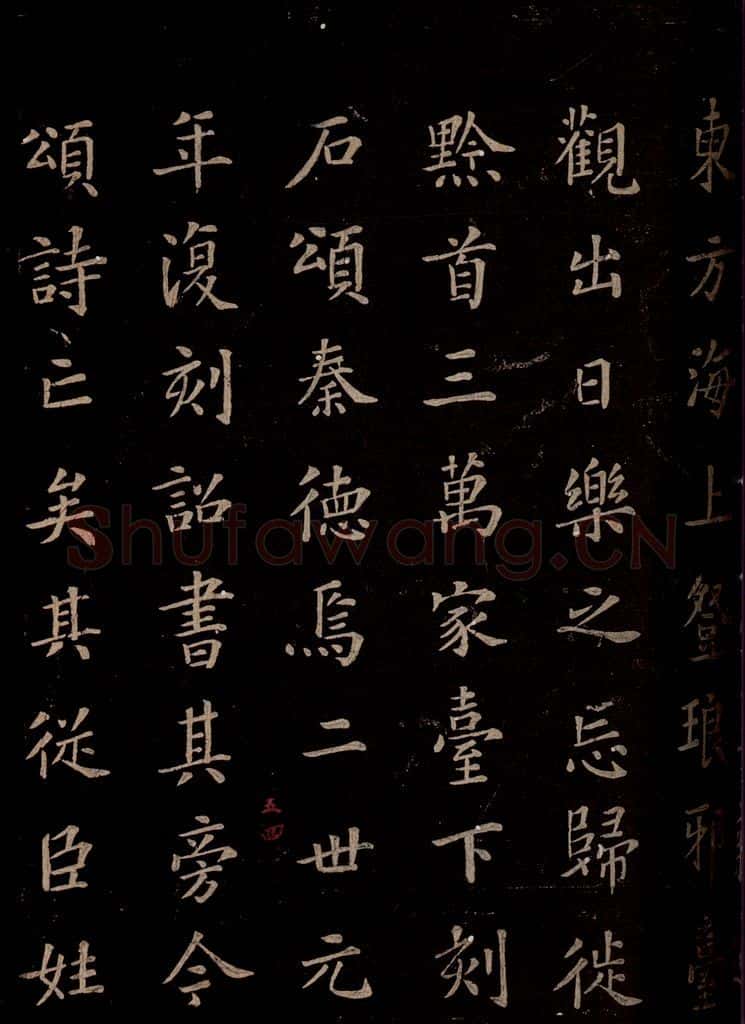 東方海上登琅邪臺
觀出日樂之忘歸徙
黔首三萬家臺下刻
石頌秦德焉二世元
年復刻詔書其旁今
頌詩亡矣其從臣姓
五四
Shufawang.CN